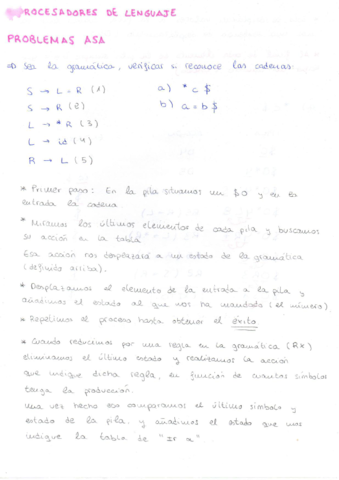 PROCESADORES DE LENGUAJE
PROBLEMAS ASA
Sea la gramática, verificar si reconoce las cadenas:
S → L = R (1) a) * c $
S → R (2) b) a = b $
L → * R (3)
L → id (4)
R → L (5)
* Primer paso: En la pila situamos un $0 y en la entrada la cadena.
* Miramos los últimos elementos de cada pila y buscamos
su acción en la tabla
Esa acción nos desplazará a un estado de la gramática
(definido arriba).
* Desplazamos el elemento de la entrada a la pila y
añadimos el estado al que nos ha mandado (el número).
* Repetimos el proceso hasta obtener el éxito
* Cuando reducimos por una regla en la gramática (Rx)
eliminamos el último estado y realizamos la acción
que indique dicha regla, en función de cuantos símbolos
tenga la producción.
Una vez hecho eso comparamos el último símbolo y
estado de la pila, y añadimos el estado que nos
indique la tabla de "Ir a"